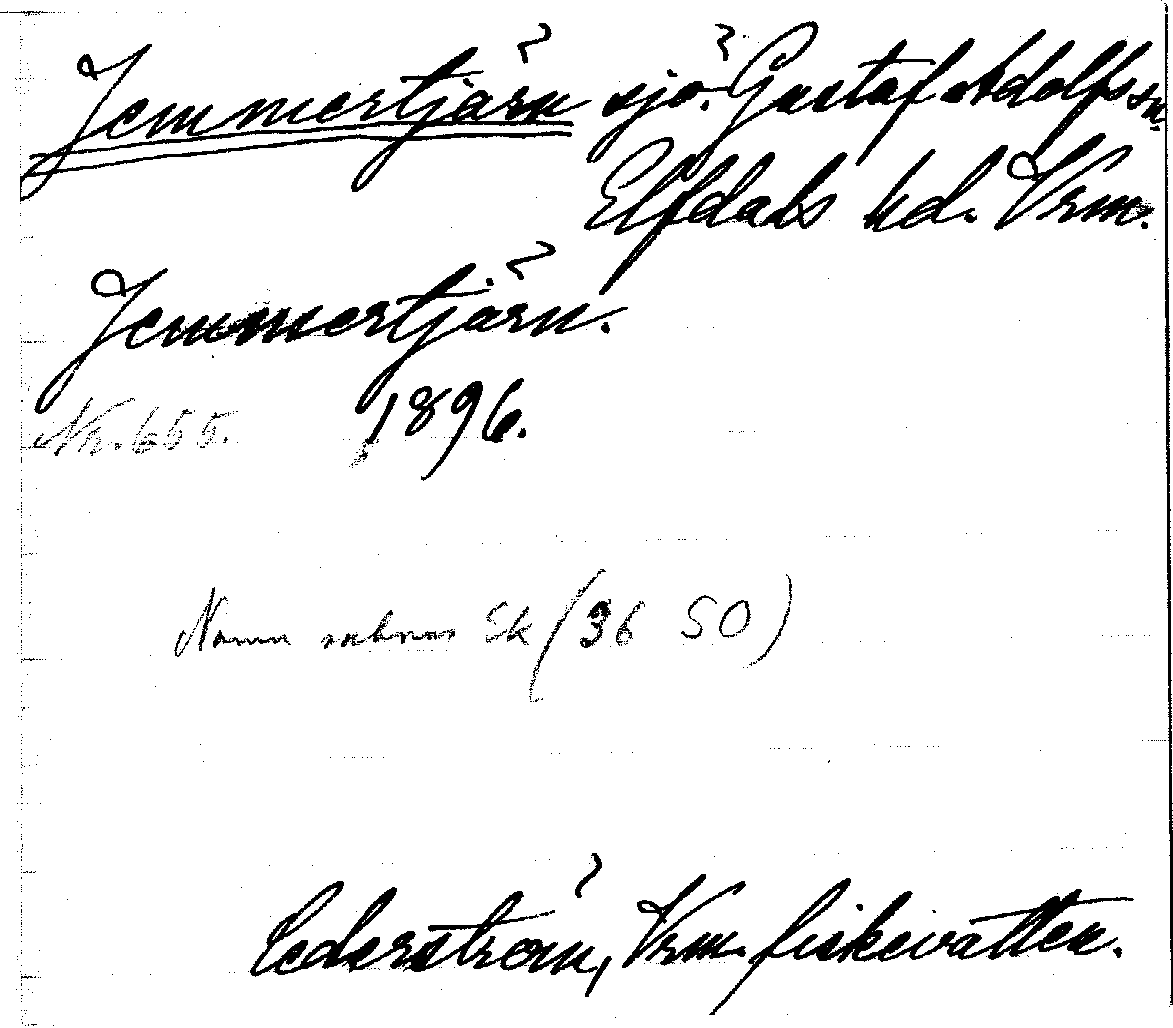 Jemmertjärn sjö. Gustaf Adolfs sn.
Elfdals hd. Vrm.
Jemmertjärn.
Nr. 655. 1896.
Namn saknas Ek (36 SO)
Cederström, Vrm. fiskevatten.